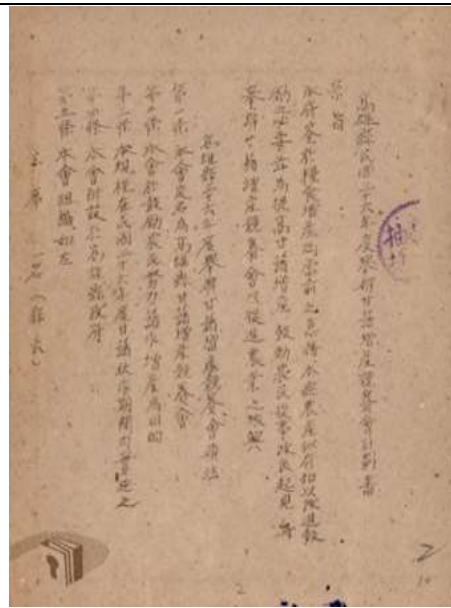 高雄縣民國三十六年度舉辦甘藷增產競賽會計劃書
宗旨
本府鑒於糧食增產為當前之急務本縣農產似有加以推進鼓
勵之必要茲為提高甘藷增產鼓勵農民從事改良起見
舉辦甘藷增產競賽會以促進農業之發展
高雄縣三十六年度舉辦甘藷增產競賽會辦法
第一條 本會定名為高雄縣甘藷增產競賽會
第二條 本會於鼓勵農民努力藷作增產為目的
第三條 本規程在民國三十六年度甘藷秋作期間內實施之
第四條 本會附設於高雄縣政府
第五條 本會組織如左
主席 一名(縣長)
2